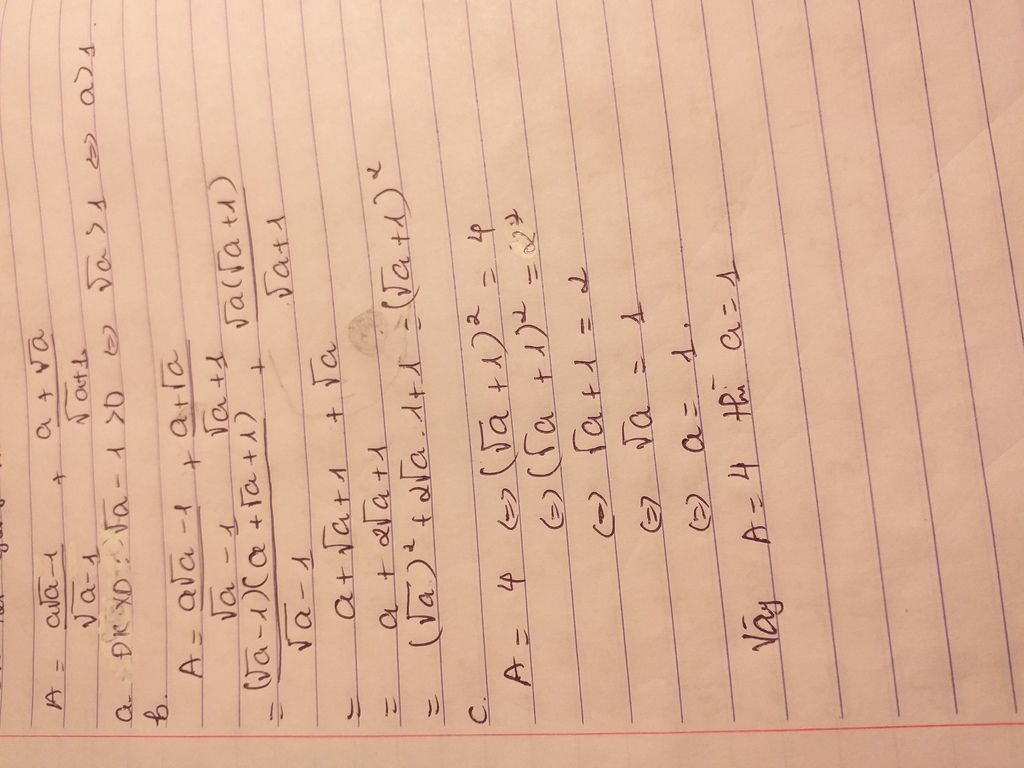 A = a√a-1 / √a-1 + a+√a / √a+1
a. ĐKXĐ: √a - 1 >0 ⇔ √a > 1 ⇔ a>1
b.
A = a√a-1 / √a-1 + a+√a / √a+1
= (√a-1)(a+√a+1) / √a-1 + √a(√a+1) / √a+1
= a+√a+1 + √a
= a + 2√a+1
= (√a)² + 2√a.1+1 = (√a+1)²
c.
A = 4 (=) (√a+1)² = 4
(=) (√a +1)² = 2²
(=) √a+1 = 2
(=) √a = 1
(=) a = 1.
Vậy A = 4 thì a = 1